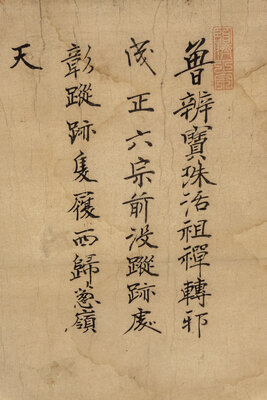 曽辨寳珠活祖禪轉邪
成正六宗前没蹤跡處
彰蹤跡隻履西歸葱嶺
天